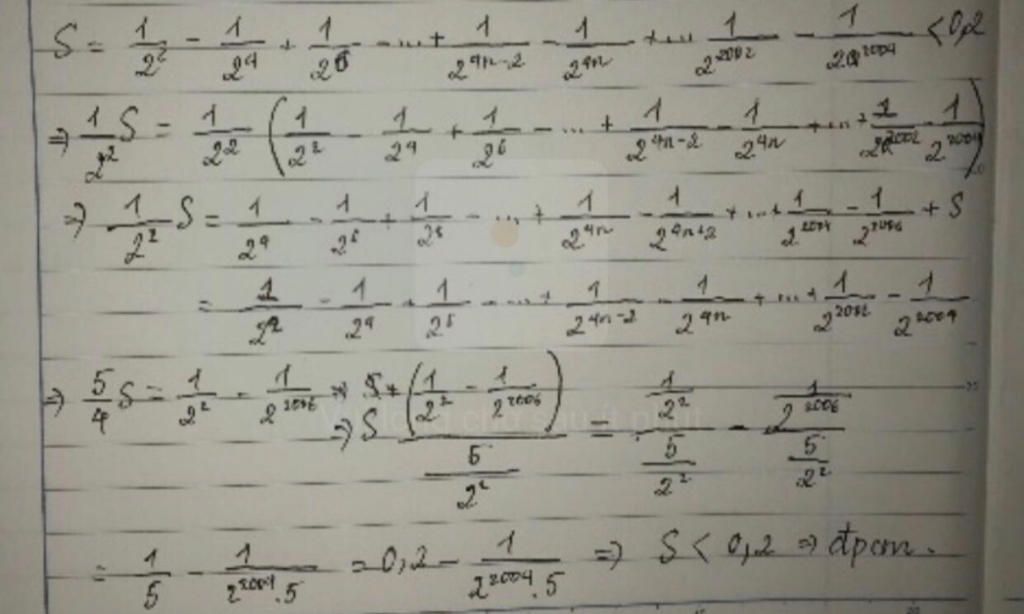 S = 1/2² - 1/2⁴ + 1/2⁶ - ... + 1/2⁴ⁿ⁻² - 1/2⁴ⁿ + ... 1/2²⁰⁰² - 1/2²⁰⁰⁴ < 0,2
⇒ 1/2² S = 1/2² (1/2² - 1/2⁴ + 1/2⁶ - ... + 1/2⁴ⁿ⁻² - 1/2⁴ⁿ + ... + 1/2²⁰⁰² - 1/2²⁰⁰⁴)
⇒ 1/2² S = 1/2⁴ - 1/2⁶ + 1/2⁸ - ... + 1/2⁴ⁿ - 1/2⁴ⁿ⁺² + ... + 1/2²⁰⁰⁴ - 1/2²⁰⁰⁶ + S
= 1/2² - 1/2⁴ + 1/2⁶ - ... + 1/2⁴ⁿ⁻² - 1/2⁴ⁿ + ... + 1/2²⁰⁰² - 1/2²⁰⁰⁴
⇒ 5/4 S = 1/2² - 1/2²⁰⁰⁶ ⇒ S (1/2² - 1/2²⁰⁰⁶) / (5/2²) = (1/2²)/(5/2²) - (1/2²⁰⁰⁶)/(5/2²)
= 1/5 - 1/(2²⁰⁰⁴.5) = 0,2 - 1/(2²⁰⁰⁴.5) ⇒ S < 0,2 ⇒ đpcm.